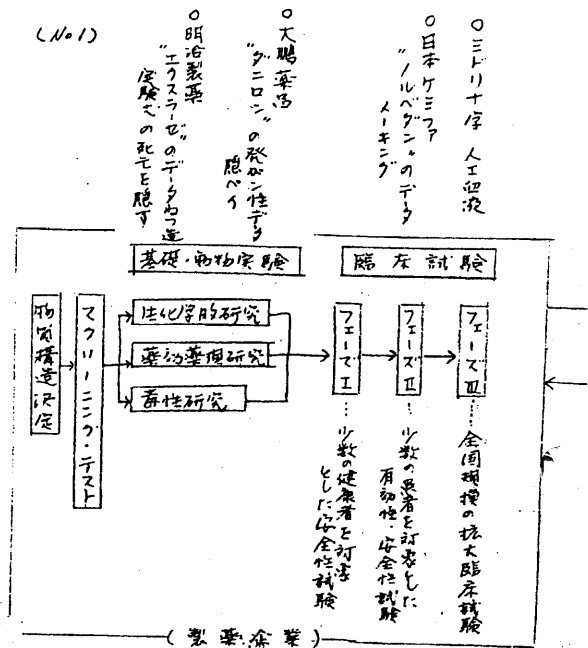 (No1)
○ミドリ十字 人工血液
○日本ケミファ
"ノルベダン"のデータ
メーキング
○大鵬薬品
"ダニロン"の発ガン性データ
隠ペイ
○明治製薬
"エクスラーゼ"のデータねつ造
実験犬の死亡を隠す
基礎・動物実験
臨床試験
物質構造決定
スクリーニング・テスト
生化学的研究
薬効薬理研究
毒性研究
フェーズⅠ
…少数の健康者を対象
とした安全性試験
フェーズⅡ
…少数の患者を対象とした
有効性・安全性試験
フェーズⅢ
……全国規模の拡大臨床試験
(製薬企業)